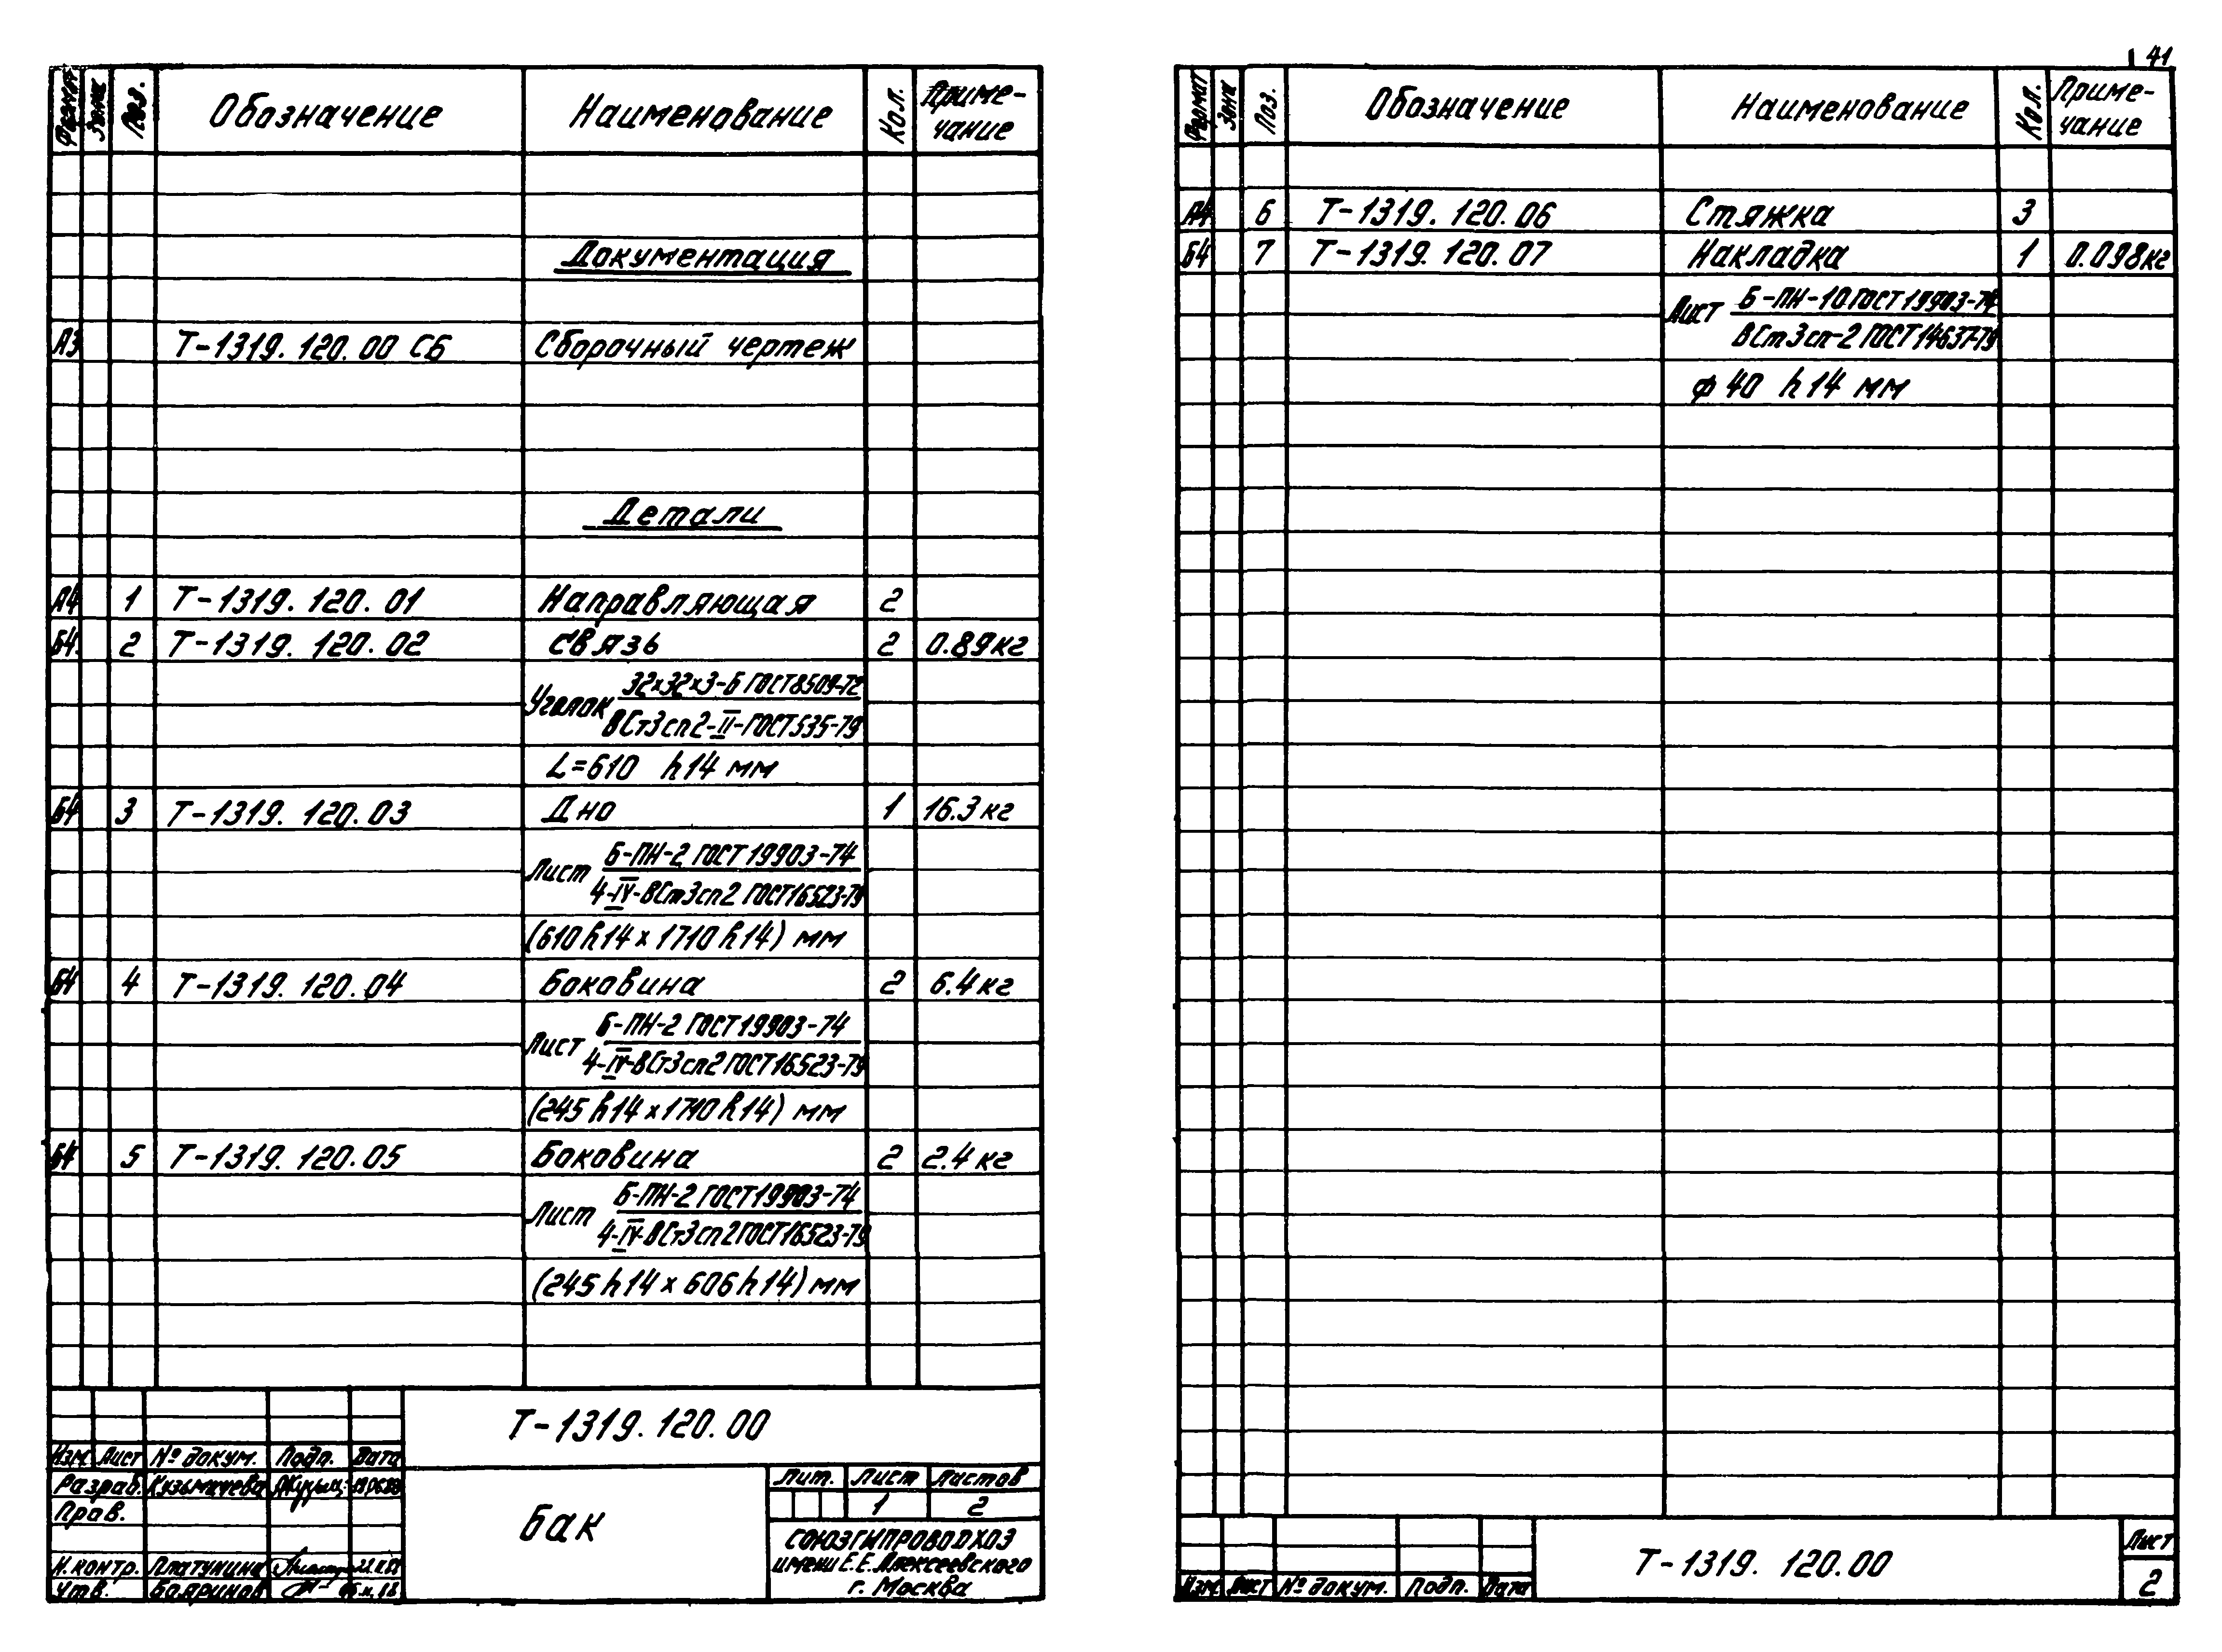 Формат Зона Поз. Обозначение Наименование Кол. Приме-
чание
Документация
А3 Т-1319. 120. 00 СБ Сборочный чертеж
Детали
А4 1 Т-1319. 120. 01 Направляющая 2
Б4 2 Т-1319. 120. 02 Связь 2 0.89кг
Уголок 32х32х3-Б ГОСТ 8509-72
ВСт3сп2-II-ГОСТ535-79
L=610 h14 мм
Б4 3 Т-1319. 120. 03 Дно 1 16.3кг
Лист Б-ПН-2 ГОСТ 19903-74
4-IV-ВСт3сп2 ГОСТ16523-79
(610 h14 х 1710 h14) мм
Б4 4 Т-1319. 120. 04 Боковина 2 6.4кг
Лист Б-ПН-2 ГОСТ19903-74
4-IV-ВСт3сп2 ГОСТ16523-79
(245 h14 х 1710 h14) мм
Б4 5 Т-1319. 120.05 Боковина 2 2.4кг
Лист Б-ПН-2 ГОСТ19903-74
4-IV-ВСт3сп2 ГОСТ16523-79
(245 h14 х 606 h14) мм
Т-1319. 120. 00
Изм Лист № докум. Подп. Дата
Разраб. Кузьмичева
Пров.
Н.контр. Платунина
Утв. Бояринов
Бак
Лит. Лист Листов
1 2
СОЮЗГИПРОВОДХОЗ
имени Е.Е.Алексеевского
г. Москва
41
Формат Зона Поз. Обозначение Наименование Кол. Приме-
чание
А4 6 Т-1319. 120. 06 Стяжка 3
Б4 7 Т-1319. 120. 07 Накладка 1 0.098кг
Лист Б-ПН-10 ГОСТ 19903-74
ВСт3сп-2 ГОСТ 14637-79
ф 40 h14 мм
Т-1319. 120.00
Лист
2
Изм Лист № докум. Подп. Дата